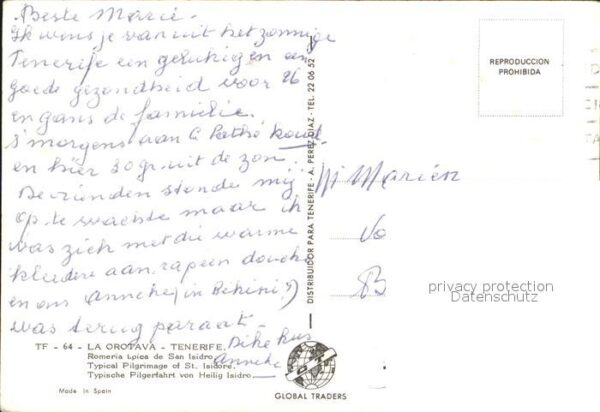 Beste Marie.
Ik wens je vanuit het zonnige
Tenerife een gelukkig en
goede gezondheid voor 86
en gans de familie.
s'morgens aan koud
en hier 30 gr. uit de zon.
De vrienden stonde mij
op te wachte maar ik
was ziek met die warme
kledere aan. rap een douche
en ons Anneke (in Bikini!)
was terug paraat.
Dikke kus
Anneke
TF - 64 - LA OROTAVA - TENERIFE
Romería típica de San Isidro
Typical Pilgrimage of St. Isidore
Typische Pilgerfahrt von Heilig Isidro
Made in Spain
DISTRIBUIDOR PARA TENERIFE - A. PEREZ DIAZ - TEL. 22 06 52
GLOBAL TRADERS
REPRODUCCION
PROHIBIDA
Marien
Vo
B
privacy protection
Datenschutz